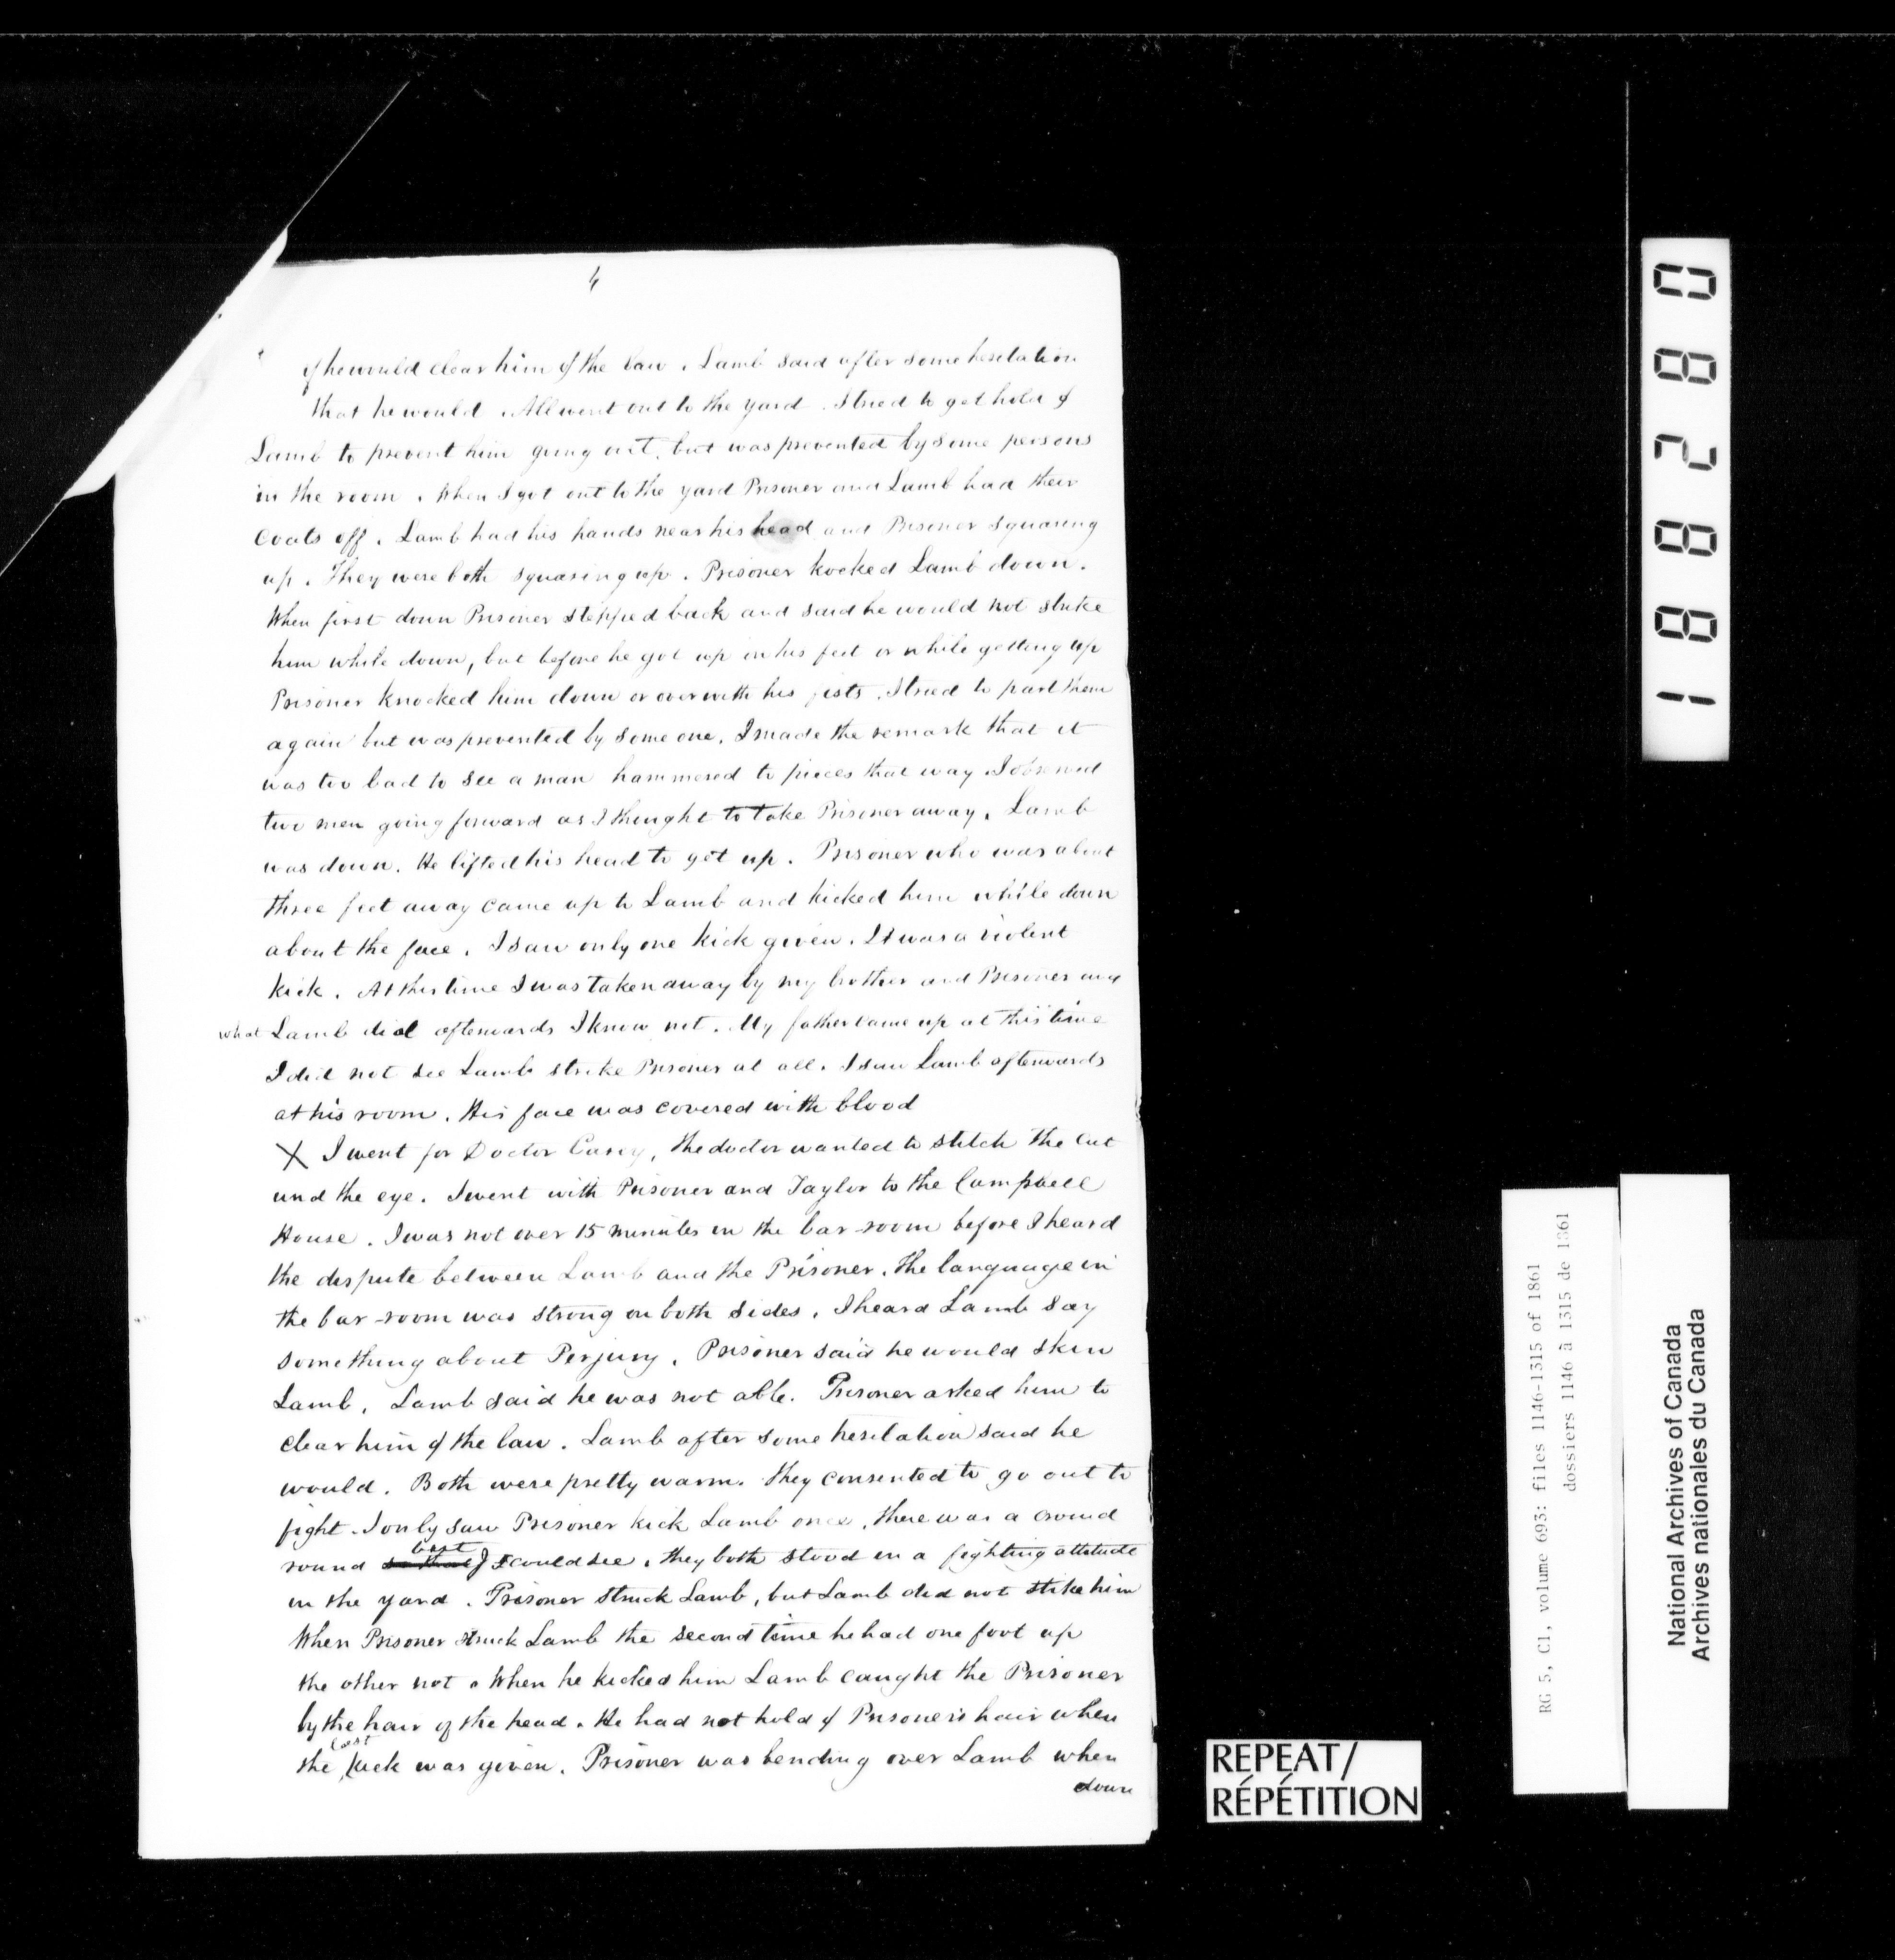 4
if he would clear him of the law. Lamb said after some hesitation
that he would. All went out to the yard. I tried to get hold of
Lamb to prevent him going out, but was prevented by some persons
in the room. When I got out to the yard Prisoner and Lamb had their
Coats off. Lamb had his hands near his head and Prisoner squaring
up. They were both squaring up. Prisoner kocked Lamb down.
When first down Prisoner stepped back and said he would not strike
him while down, but before he got up in his feet or while getting up
Prisoner knocked him down or over with his fists. I tried to part them
again but was prevented by some one. I made the remark that it
was too bad to see a man hammered to pieces that way. I observed
two men going forward as I thought to take Prisoner away. Lamb
was down. He lifted his head to get up. Prisoner who was about
three feet away came up to Lamb and kicked him while down
about the face. I saw only one kick given. It was a violent
kick. At this time I was taken away by my brother and Prisoner and
what Lamb did afterwards I know not. My father came up at this time
I did not see Lamb strike Prisoner at all. I saw Lamb afterwards
at his room. His face was covered with blood
X I went for Doctor Casey, the doctor wanted to stitch the cut
und the eye. I went with Prisoner and Taylor to the Campbell
House. I was not over 15 minutes in the bar-room before I heard
the dispute between Lamb and the Prisoner. The language in
the bar-room was strong on both sides. I heard Lamb say
something about Perjury. Prisoner said he would skin
Lamb. Lamb said he was not able. Prisoner asked him to
clear him of the law. Lamb after some hesitation said he
would. Both were pretty warm. They consented to go out to
fight. I only saw Prisoner kick Lamb once, there was a crowd
round so that but I could see. they both stood in a fighting attitude
in the yard. Prisoner struck Lamb, but Lamb did not stike him
When Prisoner struck Lamb the second time he had one foot up
the other not. When he kicked him Lamb caught the Prisoner
by the hair of the head. He had not hold of Prisoner's hair when
the last kick was given. Prisoner was bending over Lamb when
down
188280
RG 5, C1, volume 693: files 1146-1315 of 1861
dossiers 1146 à 1315 de 1861
National Archives of Canada
Archives nationales du Canada
REPEAT/
RÉPÉTITION